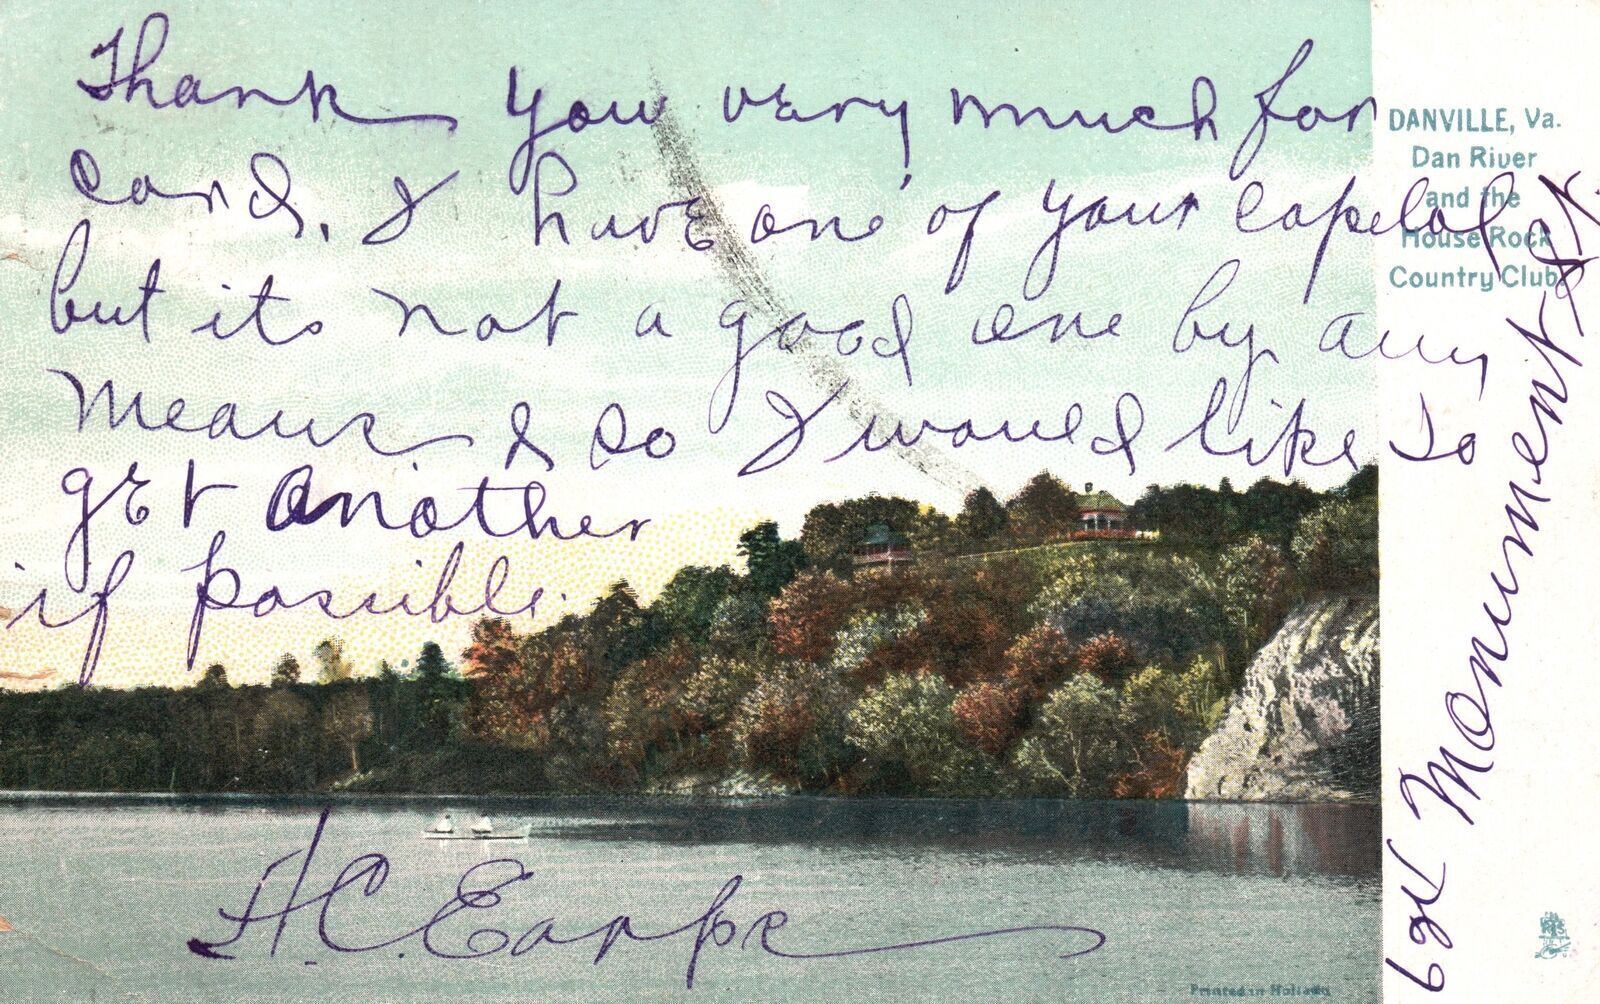 Thank you very much for
card. I have one of your capelol
but its not a good one by any
means & so I would like to
get another
if possible.
H.C. Earpe
DANVILLE, Va.
Dan River
and the
House Rock
Country Club.
Monument St.
Printed in Holland